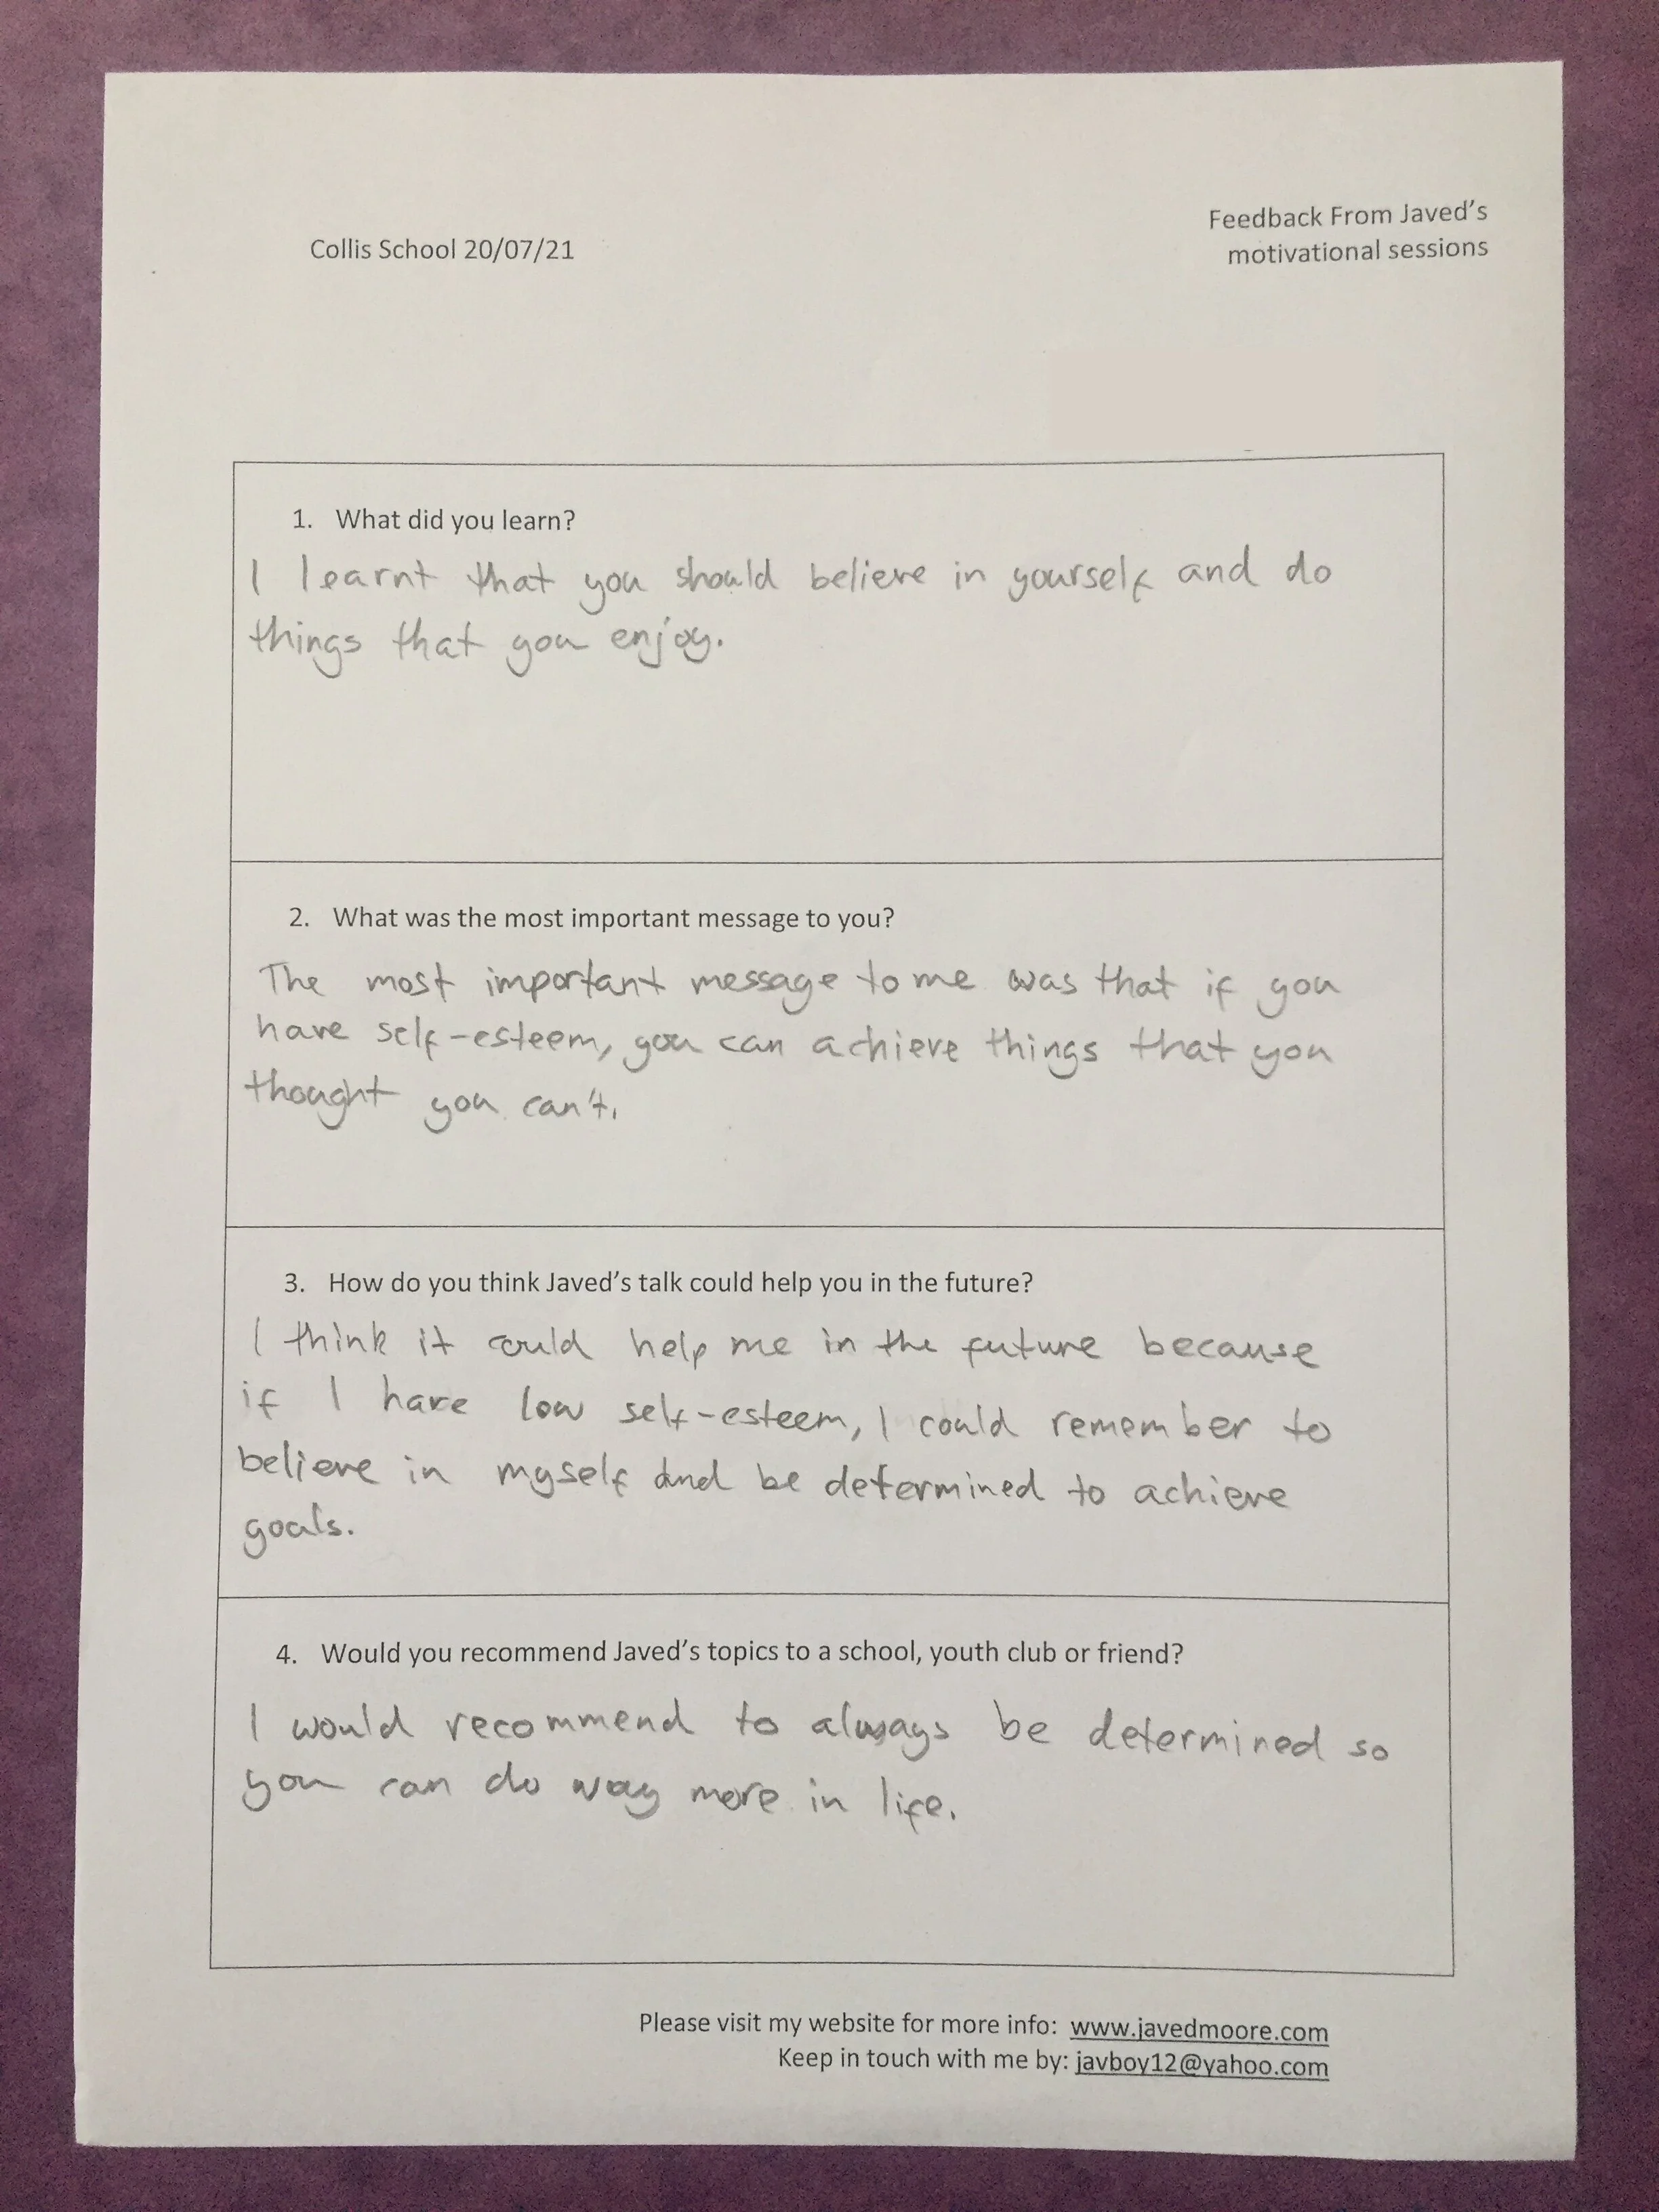 Collis School 20/07/21
Feedback From Javed's
motivational sessions
1. What did you learn?
I learnt that you should believe in yourself and do
things that you enjoy.
2. What was the most important message to you?
The most important message to me was that if you
have self-esteem, you can achieve things that you
thought you can't.
3. How do you think Javed's talk could help you in the future?
I think it could help me in the future because
if I have low self-esteem, I could remember to
believe in myself and be determined to achieve
goals.
4. Would you recommend Javed's topics to a school, youth club or friend?
I would recommend to always be determined so
you can do way more in life.
Please visit my website for more info: www.javedmoore.com
Keep in touch with me by: javboy12@yahoo.com